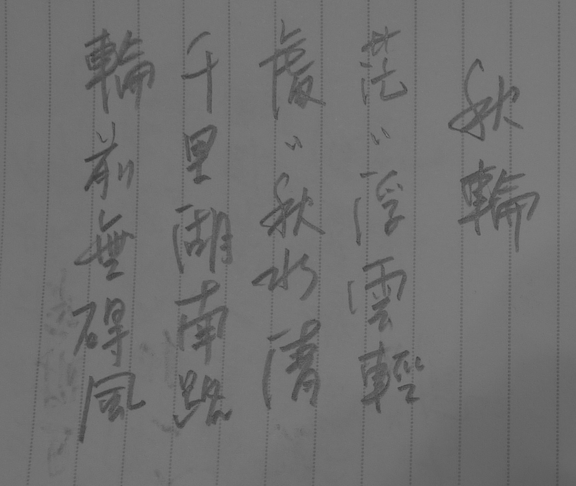 秋輪
茫〻浮雲輕
處〻秋水清
千里湖南路
輪前無碍風